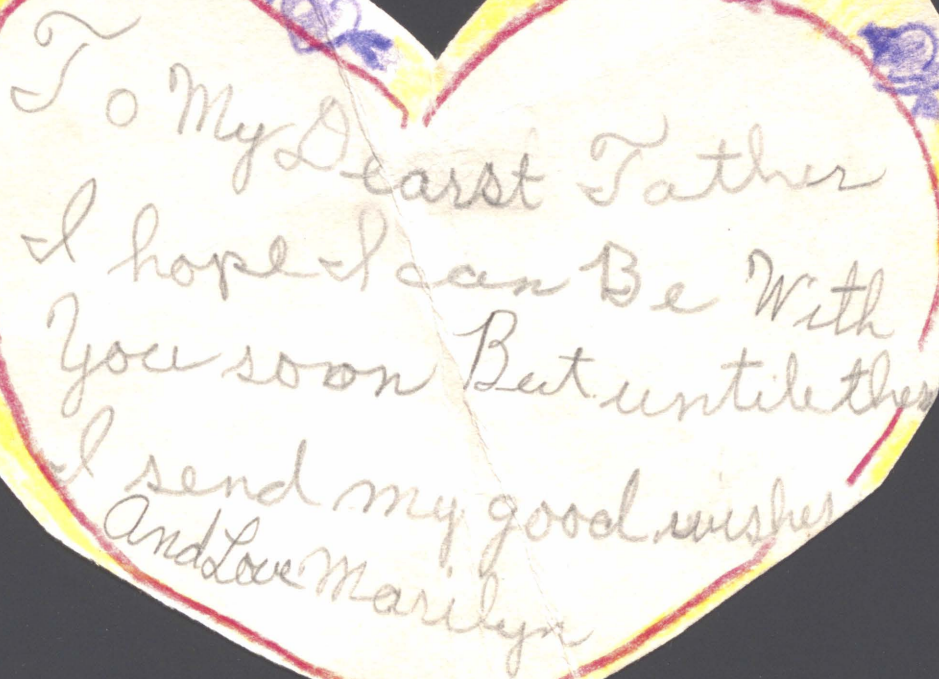 To My Dearst Father
I hope I can Be With
You soon But until then
I send my good wishes
And Love Marilyn